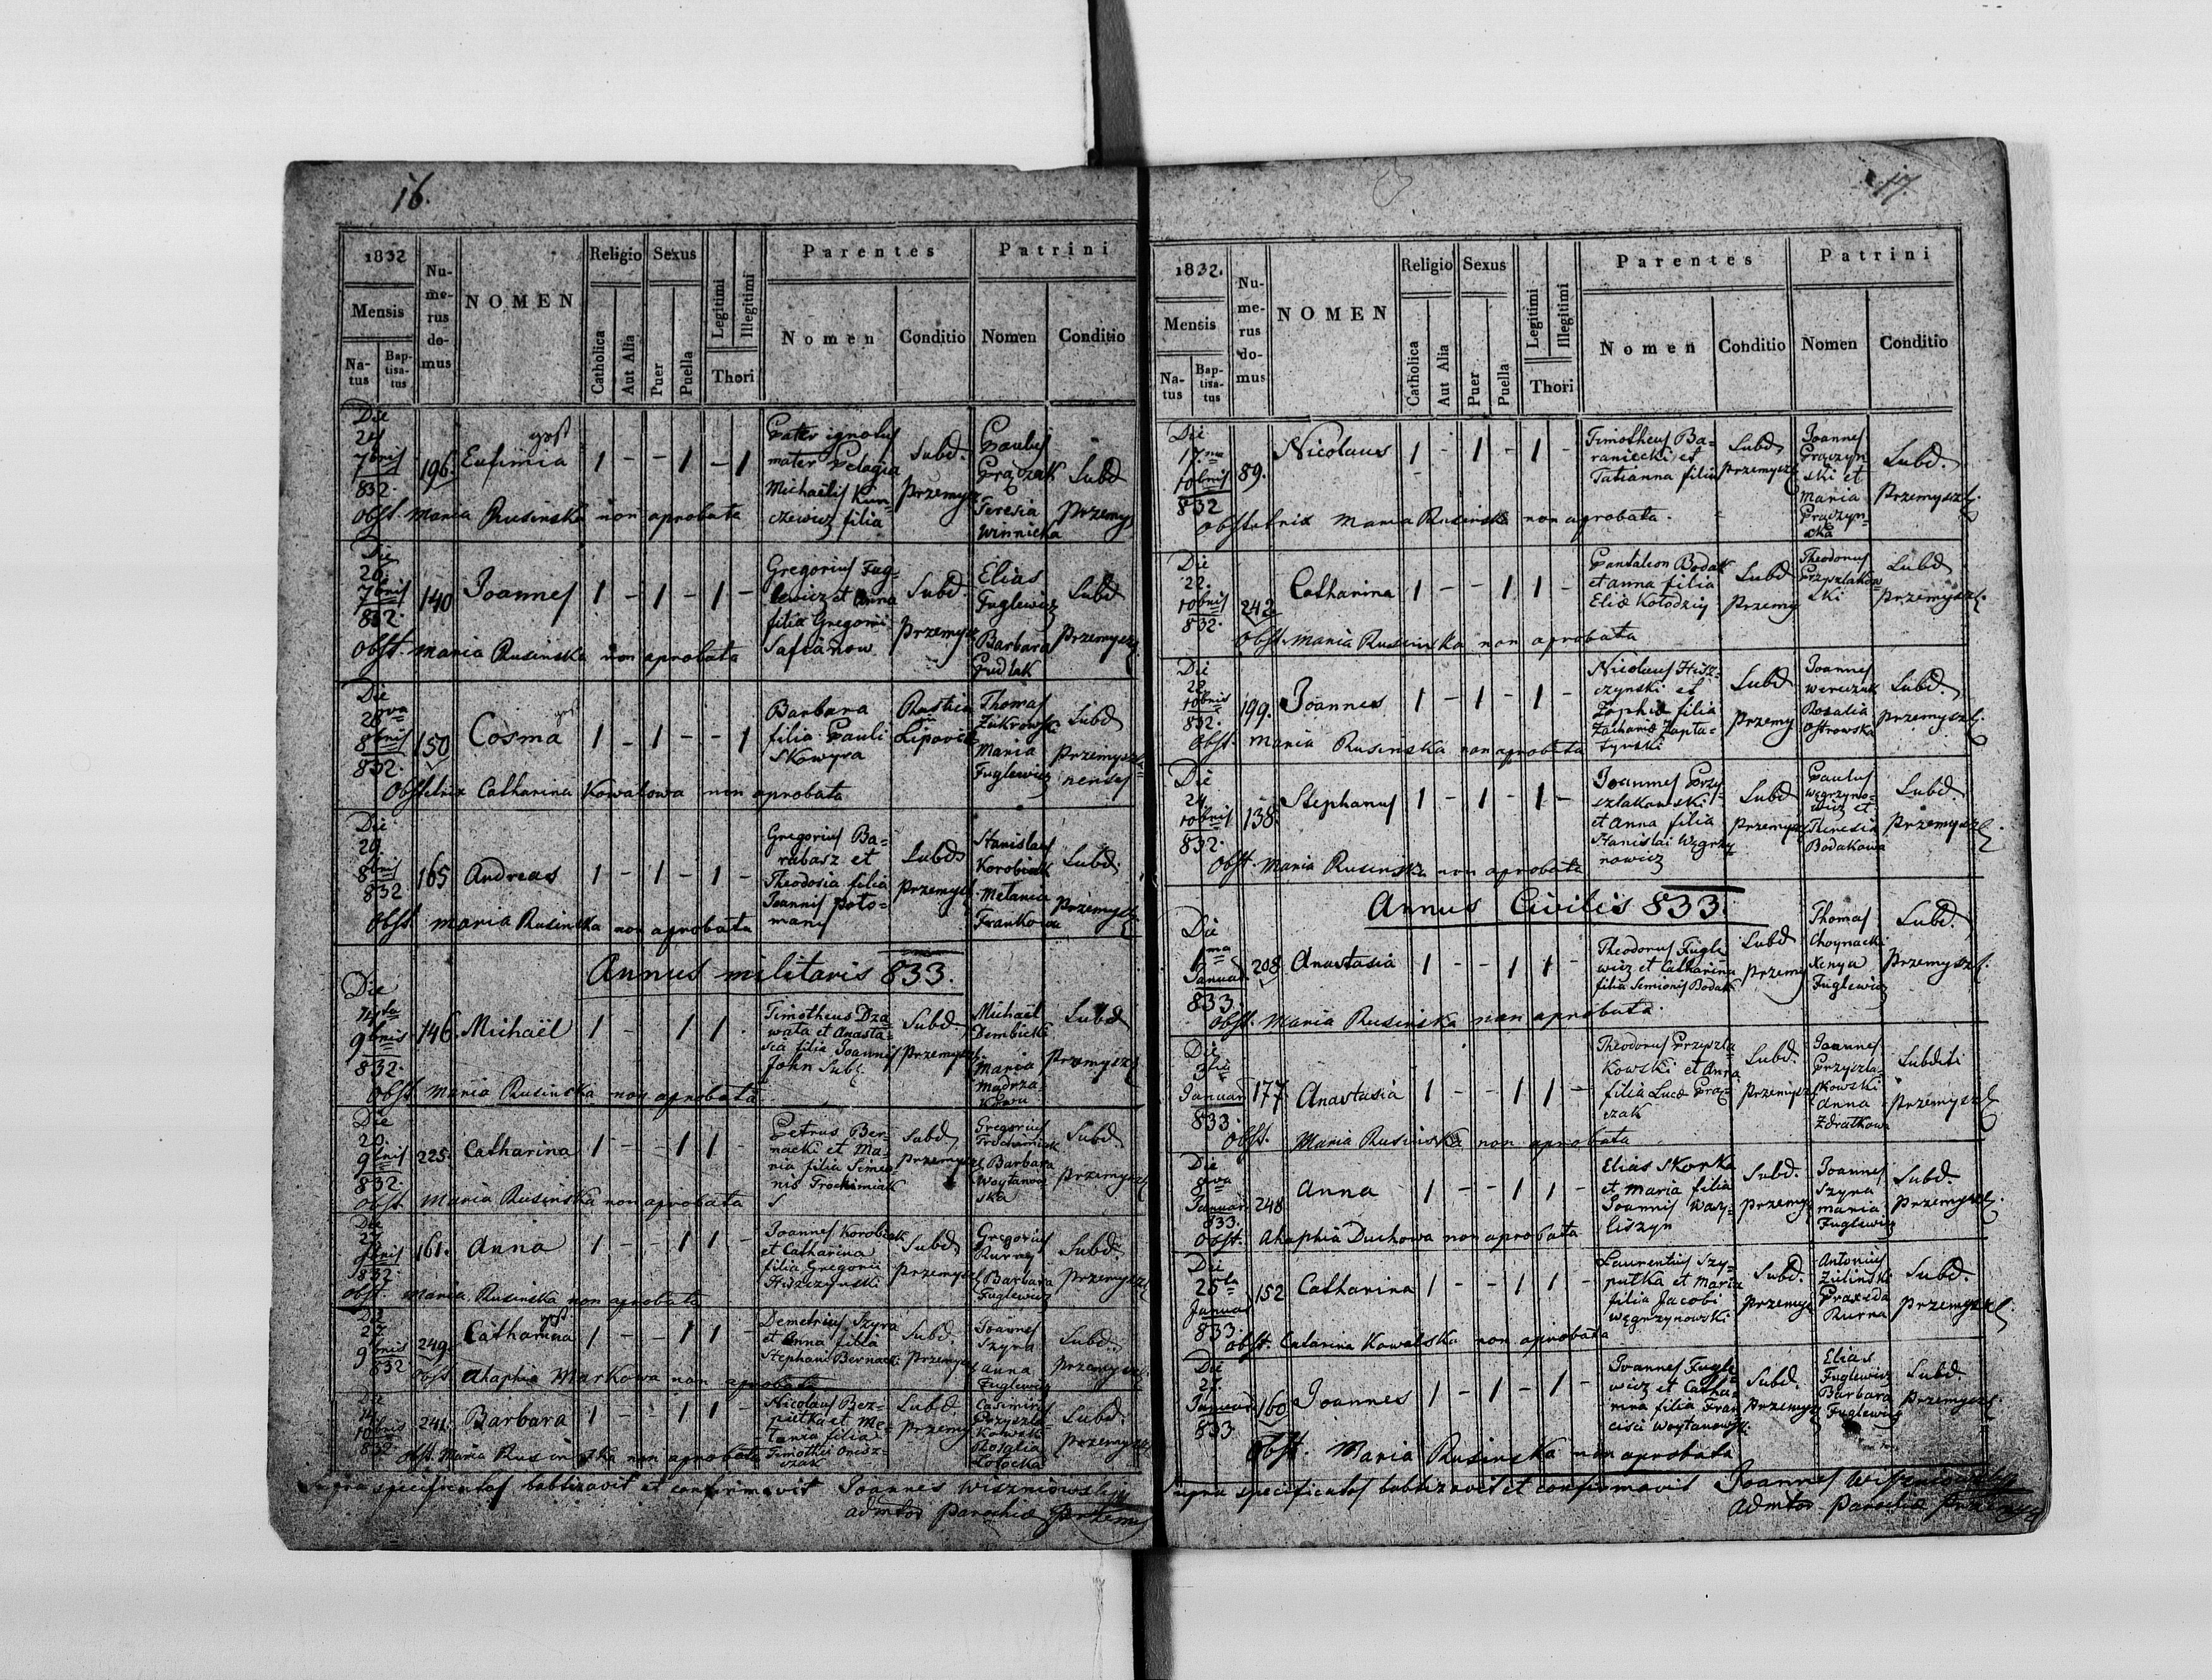 16.
1832
Mensis
Na-
tus
Bap-
tisa-
tus
Nu-
me-
rus
do-
mus
NOMEN
Religio
Catholica
Aut Alia
Sexus
Puer
Puella
Legitimi
Illegitimi
Thori
Parentes
Nomen
Conditio
Patrini
Nomen
Conditio
Die
7bris
832.
196.
Eufimia
1 - - 1 - 1
Pater ignotus
mater Pelagia
Michaëlis Kun-
czewicz filia
Subd.
Przemysl
Paulus
Prączak
Teresia
Winnicka
Subd
Przemys
Obst. Maria Rusinska non aprobata
Die
26
7bris
832.
140
Joannes
1 - 1 - 1 -
Gregorius Fug-
lewicz et Anna
filia Gregorii
Safianow
Subd.
Przemysl
Elias
Fuglewicz
Barbara
Gudlak
Subd
Przemyszl
Obst. Maria Rusinska non aprobata
Die
28va
8bris
832.
150
Cosma
1 - 1 - - 1
Barbara
filia Pauli
Skowyra
Rustica
Lipovic
Thomas
Zukrowski
Maria
Fuglewicz
Subd
Przemyszl
nenses
Obstetrix Catharina Kowalowa non aprobata
Die
29.
8bris
832
165
Andreas
1 - 1 - 1 -
Gregorius Ba-
rabasz et
Theodosia filia
Joannis Poto-
manj
Subd
Przemysl
Stanislaus
Korobiak
Melania
Frankowa
Subd.
Przemysl
Obst. Maria Rusinska non aprobata
Annus militaris 833.
Die
9bris
832.
146.
Michaël
1 - 1 1
Timotheus Dza-
wata et Anasta-
sia filia Joannis
John Subd.
Subd.
Przemyszl
Michaël
Dembicki
Maria
Mądrza-
kowa
Subd
Przemyszl
Obst. Maria Rusinska non aprobata
Die
20.
9bris
832.
225.
Catharina
1 - - 1 1 -
Petrus Ber-
nacki et Ma-
ria filia Simeo-
nis Trochimiak
Subd
Przemysl
Gregorius
Trochimiak
et Barbara
Woytanow-
ska
Subd
Przemyszl
Obst. Maria Rusinska non aprobata
Die
9bris
832.
161.
Anna
1 - - 1 1 -
Joannes Korobiak
et Catharina
filia Gregorii
Hiszczynski
Subd
Przemysl
Gregorius
Kurney
Barbara
Fuglewicz
Subd.
Przemyszl
Obst. Maria Rusinska non aprobata
Die
9bris
832
249.
Catharina
1 - - 1 1 -
Demetrius Szyra
et Anna filia
Stephani Bernacki
Subd.
Przemysl
Joannes
Szyra
Anna
Fuglewicz
Subd.
Przemyszl.
Obst. Ahaphia Markowa non aprobata
Die
10bris
832.
241.
Barbara
1 - - 1 1 -
Nicolaus Bez-
putka et Me-
lania filia
Timothei Onisz-
czak
Subd.
Przemy
Casimirus
Przyszla-
kowski
Rosalia
Lotocka
Subd.
Przemyszl
Obst. Maria Rusinska non aprobata
Supra specificatos babtizavit et confirmavit Joannes Wiszniowskij
admtor Parochiæ Przemys
17.
1832.
Mensis
Na-
tus
Bap-
tisa-
tus
Nu-
me-
rus
do-
mus
NOMEN
Religio
Catholica
Aut Alia
Sexus
Puer
Puella
Legitimi
Illegitimi
Thori
Parentes
Nomen
Conditio
Patrini
Nomen
Conditio
Die
17.ma
10bris
832
89.
Nicolaus
1 - 1 - 1 -
Timotheus Ba-
raniecki et
Tatianna filia
Subd
Przemyszl
Joannes
Prączyn
ski et
Maria
Prączyn-
ska
Subd.
Przemyszl.
Obstetrix Maria Rusinska non aprobata.
Die
22.
10bris
832.
242
Catharina
1 - - 1 1 -
Pantaleon Bodak
et Anna filia
Eliæ Kolodzij
Subd
Przemy
Theodorus
Przyszlakow-
ski
Subd
Przemyszl.
Obst. Maria Rusinska non aprobata
Die
22.
10bris
832.
199.
Joannes
1 - 1 - 1 -
Nicolaus Hisz-
czynski et
Zophia filia
Zachariæ Zapla-
tynski
Subd
Przemy
Joannes
Werczak
Rosalia
Ostrowska
Subd.
Przemyszl.
Obst. Maria Rusinska non aprobata
Die
24.
10bris
832.
138.
Stephanus
1 - 1 - 1 -
Joannes Przy-
szlakowski
et Anna filia
Stanislai Węgrzy-
nowicz
Subd
Przemysl
Paulus
Węgrzyno-
wicz et
Theresia
Bodakowa
Subd.
Przemyszl.
Obst. Maria Rusinska non aprobata
Annus Civilis 833.
Die
1ma
Januar
833.
208
Anastasia
1 - - 1 1 -
Theodorus Fugle-
wicz et Catharina
filia Semionis Bodak
Subd
Przemy
Thomas
Choynacki
Xenya
Fuglewicz
Subd.
Przemyszl.
Obst. Maria Rusinska non aprobata.
Die
3tia
Januar
833.
177
Anastasia
1 - - 1 1 -
Theodorus Przyszla-
kowski et Anna
filia Lucæ Prą-
czak
Subd.
Przemysl
Joannes
Przyszla-
kowski
Anna
Zdratkowa
Subditi
Przemyszl
Obst. Maria Rusinska non aprobata
Die
8va
Januar
833.
248
Anna
1 - - 1 1 -
Elias Skorka
et Maria filia
Joannis Wasy-
liszyn
Subd.
Przemysl
Joannes
Szyra
Maria
Fuglewicz
Subd.
Przemyszl.
Obst. Ahaphia Duchowa non aprobata
Die
25ta
Januar
833.
152
Catharina
1 - - 1 1 -
Laurentius Szy-
putka et Maria
filia Jacobi
Węgrzynowski
Subd.
Przemysl
Antonius
Zulinski
Praxeda
Kurna
Subd.
Przemyszl.
Obst. Catarina Kowalska non aprobata
Die
27.
Januar
833
160
Joannes
1 - 1 - 1 -
Joannes Fugle-
wicz et Catha-
rina filia Fran-
cisci Woytanowski
Subd.
Przemysl
Elias
Fuglewicz
Barbara
Fuglewicz
Subd
Przemyszl.
Obst. Maria Rusinska non aprobata
Supra specificatos babtizavit et confirmavit Joannes Wiszniowskij
admtor Parochiæ Przemys